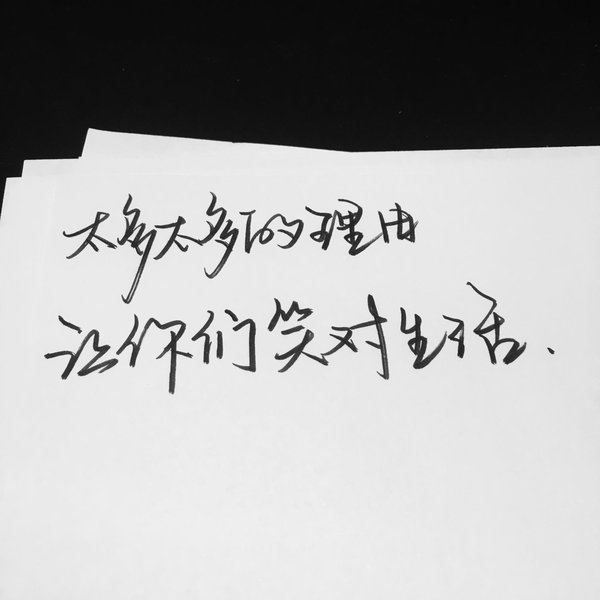 太多太多的理由
让你们笑对生活.